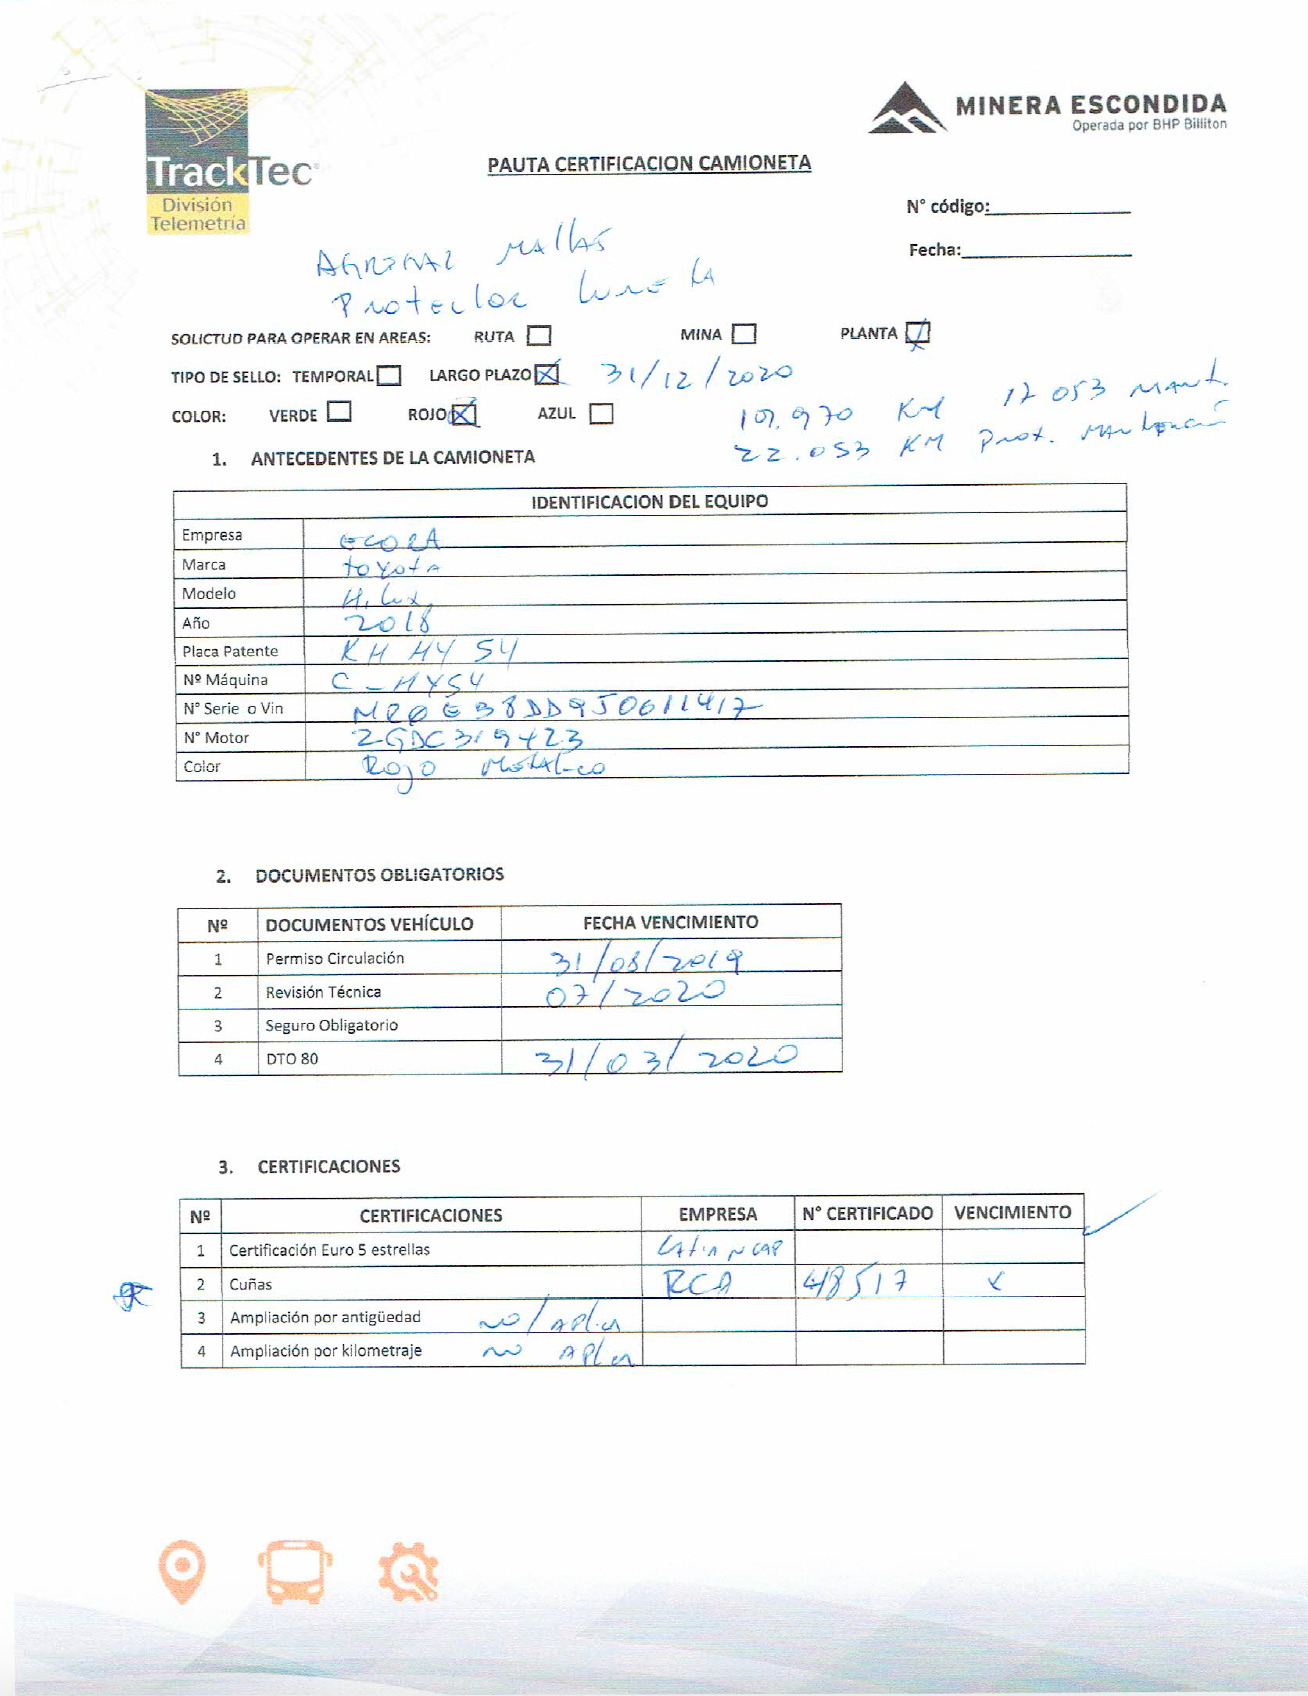 MINERA ESCONDIDA
Operada por BHP Billiton
TrackTec
División
Telemetría
PAUTA CERTIFICACION CAMIONETA
N° código:
Fecha:
AGREGAR MALLAS
Protector Luneta
SOLICTUD PARA OPERAR EN AREAS: RUTA MINA PLANTA X
TIPO DE SELLO: TEMPORAL LARGO PLAZO X 31/12/2020
COLOR: VERDE ROJO X AZUL KM 17 053 Mant.
22.053 KM Prox. Mantención
1. ANTECEDENTES DE LA CAMIONETA
IDENTIFICACION DEL EQUIPO
Empresa ECORA
Marca toyota
Modelo Hilux
Año 2018
Placa Patente KH HY 54
Nº Máquina C-HY54
N° Serie o Vin
N° Motor
Color Rojo Metalico
2. DOCUMENTOS OBLIGATORIOS
Nº DOCUMENTOS VEHÍCULO FECHA VENCIMIENTO
1 Permiso Circulación 31/08/2019
2 Revisión Técnica 07/2020
3 Seguro Obligatorio
4 DTO 80 31/03/2020
3. CERTIFICACIONES
Nº CERTIFICACIONES EMPRESA N° CERTIFICADO VENCIMIENTO
1 Certificación Euro 5 estrellas Latin NCAP
2 Cuñas RCA 418517 X
3 Ampliación por antigüedad NO/APLICA
4 Ampliación por kilometraje NO APLICA